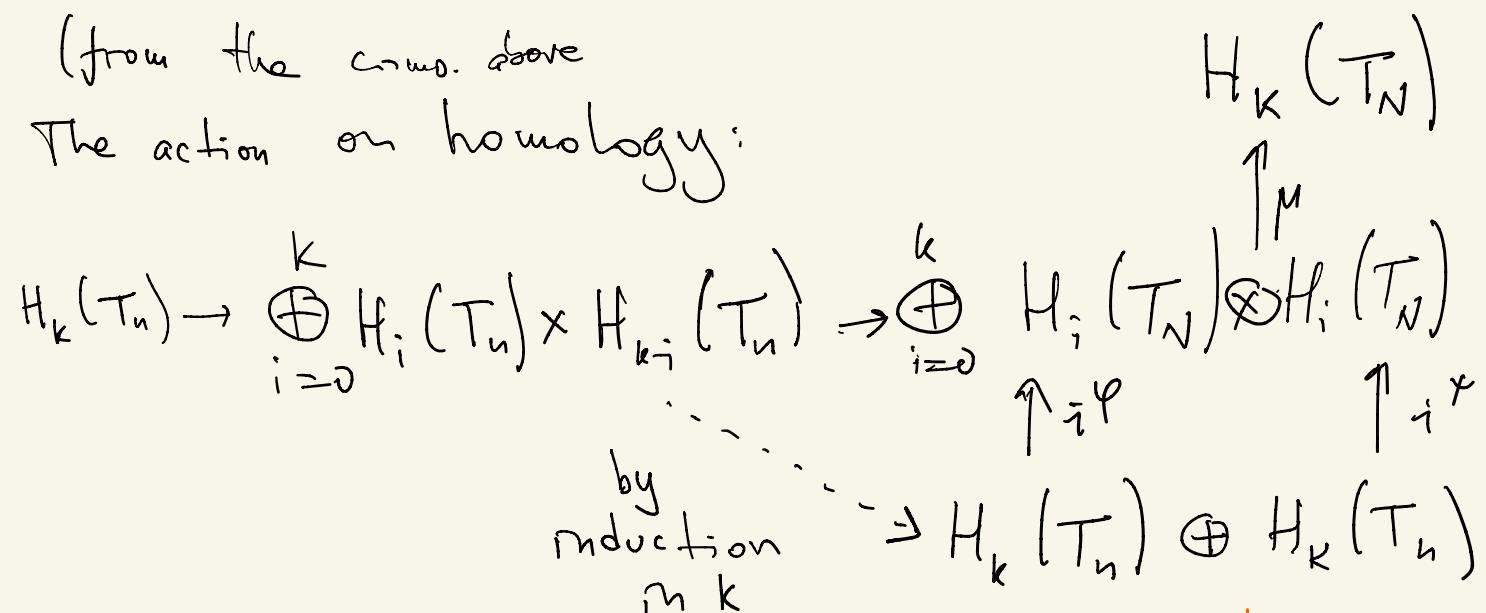 (from the comp. above
The action on homology:
H_k(T_N)
↑ μ
H_k(T_n) → ⊕_{i=0}^{k} H_i(T_n) × H_{k-i}(T_n) → ⊕_{i=0}^{k} H_i(T_N) ⊗ H_i(T_N)
↑ i^φ ↑ i^x
by
induction
in k
H_k(T_n) ⊕ H_k(T_n)